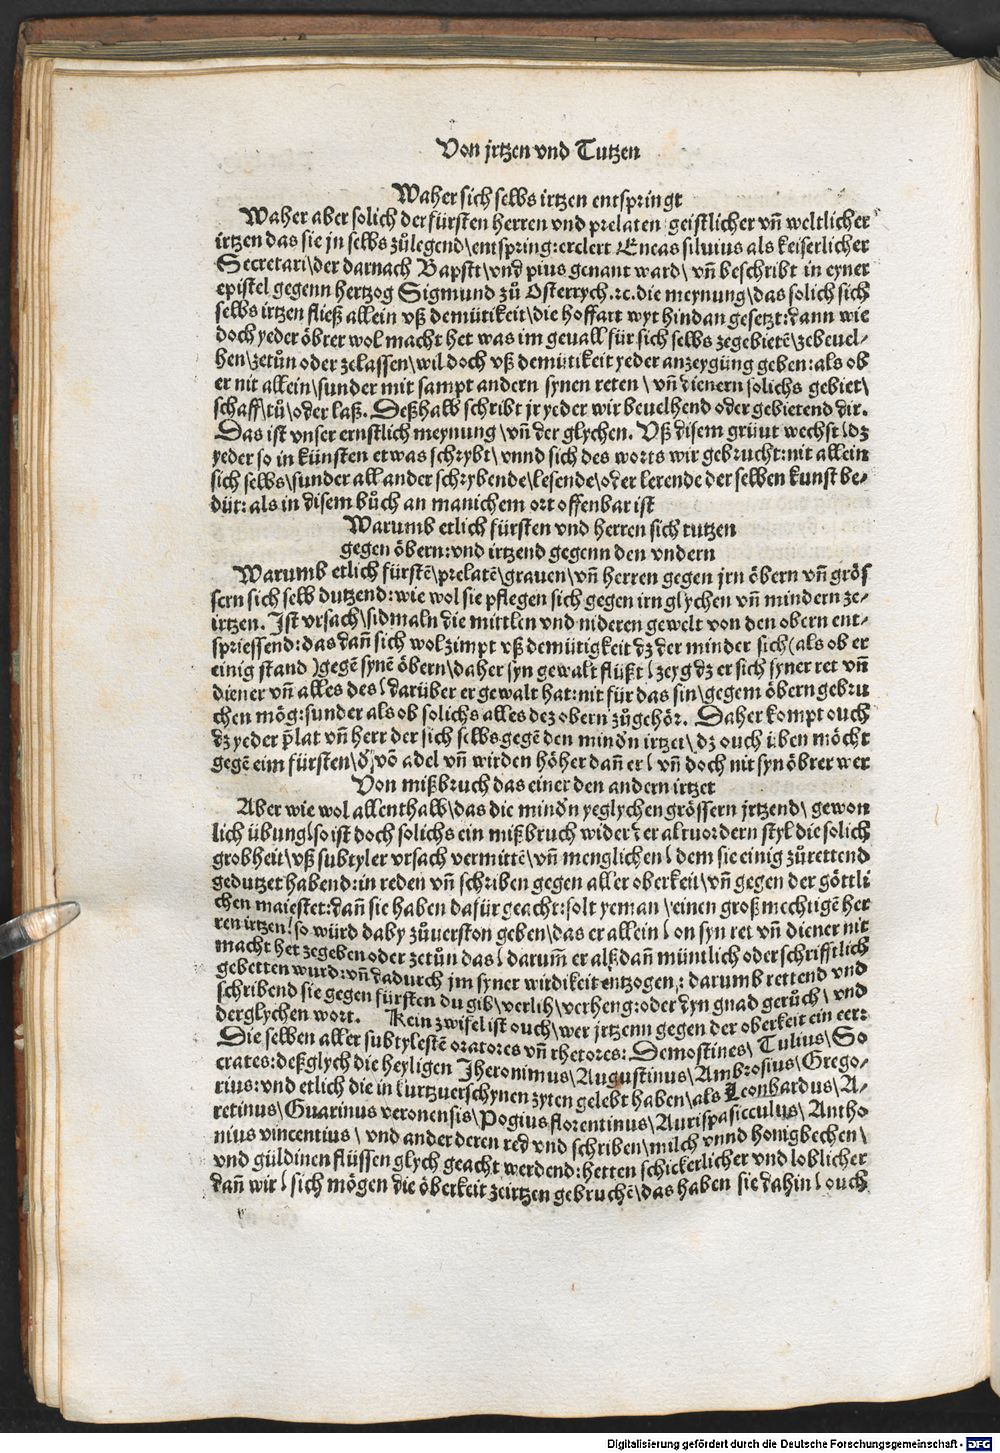 Von jrtzen vnd Tutzen
Waher sich selbs irtzen entspringt
Waher aber solich der fürsten herren vnd prelaten geistlicher vñ weltlicher
irtzen das sie jn selbs zůlegend\entspring:erclert Eneas siluius als keiserlicher
Secretari\der darnach Bapstt\vnd pius genant ward\ vñ beschribt in eyner
epistel gegenn hertzog Sigmund zů Osterrych.⁊c.die meynung\das solich sich
selbs irtzen fließ allein vß demütikeit\die hoffart wyt hindan gesetzt:dann wie
doch yeder öbrer wol macht het was im geuall für sich selbs zegebietẽ\zebeuel⸗
hen\zetůn oder zelassen\wil doch vß demütikeit yeder anzeygüng geben:als ob
er nit allein\sunder mit sampt andern synen reten\ vñ dienern solichs gebiet\
schaff\tů\oder laß. Deßhalb schribt jr yeder wir beuelhend oder gebietend dir.
Das ist vnser ernstlich meynung\vñ der glychen. Vß disem grüut wechst\dz
yeder so in künsten etwas schrybt\vnnd sich des worts wir gebrucht:nit allein
sich selbs\sunder all ander schrybende\lesende\oder lerende der selben kunst be⸗
düt: als in disem bůch an manichem ort offenbar ist
Warumb etlich fürsten vnd herren sich tutzen
gegen öbern:vnd irtzend gegenn den vndern
Warumb etlich fürstẽ\prelatẽ\grauen\vñ herren gegen jrn öbern vñ grös
sern sich selb dutzend:wie wol sie pflegen sich gegen irn glychen vñ mindern ze⸗
irtzen. Ist vrsach\sidmaln die mittlen vnd nideren gewelt von den obern ent⸗
spriessend:das dañ sich wol zimpt vß demütigkeit dz der minder sich(als ob er
einig stand)gegẽ synẽ öbern\daher syn gewalt flüßt\zeyg dz er sich syner ret vñ
diener vñ alles des\darüber er gewalt hat:nit für das sin\gegem öbern gebru
chen mög:sunder als ob solichs alles dez obern zůgehör. Daher kompt ouch
dz yeder p̃lat vñ herr der sich selbs gegẽ den mindn irtzet\dz ouch üben möcht
gegẽ eim fürsten\d võ adel vñ wirden höher dañ er\ vñ doch nit syn öbrer wer
Von mißbruch das einer den andern irtzet
Aber wie wol allenthalb\das die mindn yeglychen grössern jrtzend\ gewon
lich übung\so ist doch solichs ein mißbruch wider der altuordern styl die solich
grobheit\vß subtyler vrsach vermittẽ\vñ menglichen\dem sie einig zůrettend
gedutzet habend:in reden vñ schriben gegen aller oberkeit\vñ gegen der göttli
chen maiestet:dañ sie haben dafür geacht:solt yeman\einen groß mechtigẽ her
ren irtzen\so würd daby zůuerston geben\das er allein\on syn ret vñ diener nit
macht het zegeben oder zetůn das\darum̃ er alß dañ müntlich oder schrifftlich
gebetten wurd:vñ dadurch jm syner wirdikeit entzogen: darumb rettend vnd
schribend sie gegen fürsten du gib\verlih\verheng:oder dyn gnad gerůch\ vnd
derglychen wort. Kein zwifel ist ouch\wer jrtzenn gegen der oberkeit ein eer:
Die selben aller subtylestẽ oratores vñ rhetores: Demostines\ Tulius\So
crates:deßglych die heyligen Iheronimus\Augustinus\Ambrosius\Grego⸗
rius:vnd etlich die in kurtzuerschynen zyten gelebt haben\als Leonhardus\A⸗
retinus\Guarinus veronensis\Pogius florentinus\Aurispa siculus\Antho
nius vincentius\ vnd ander deren red vnd schriben\milch vnnd honigbechen\
vnd güldinen flüssen glych geacht werdend:hetten schickerlicher vnd loblicher
dañ wir\sich mögen die öberkeit zeirtzen gebruchẽ\das haben sie dahin\ouch
Digitalisierung gefördert durch die Deutsche Forschungsgemeinschaft - DFG